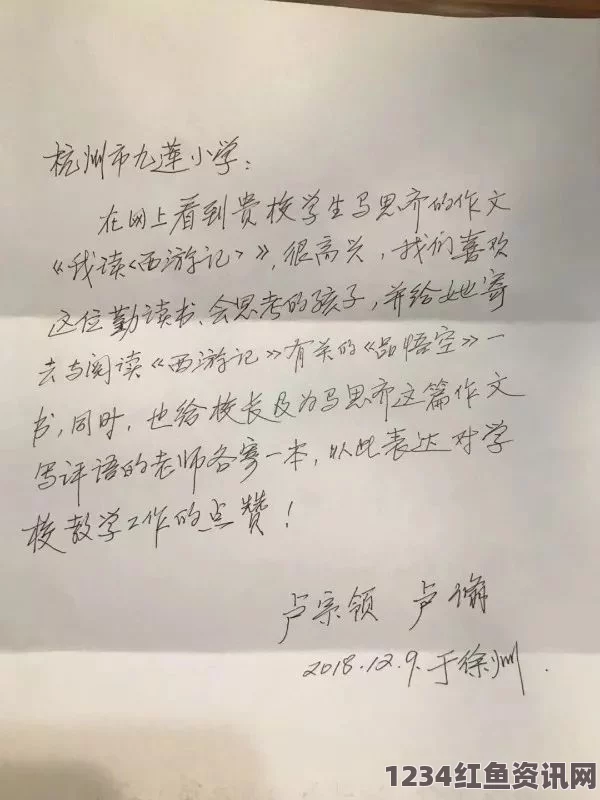 杭州市九莲小学：
在网上看到贵校学生马思齐的作文
《我读《西游记》》，很高兴，我们喜欢
这位勤读书、会思考的孩子，并给她寄
去与阅读《西游记》有关的《品悟空》一
书，同时，也给校长及为马思齐这篇作文
写评语的老师各寄一本，以此表达对学
校教学工作的点赞！
卢宗领 卢
2018.12.9.于徐州.
1234红鱼资讯网